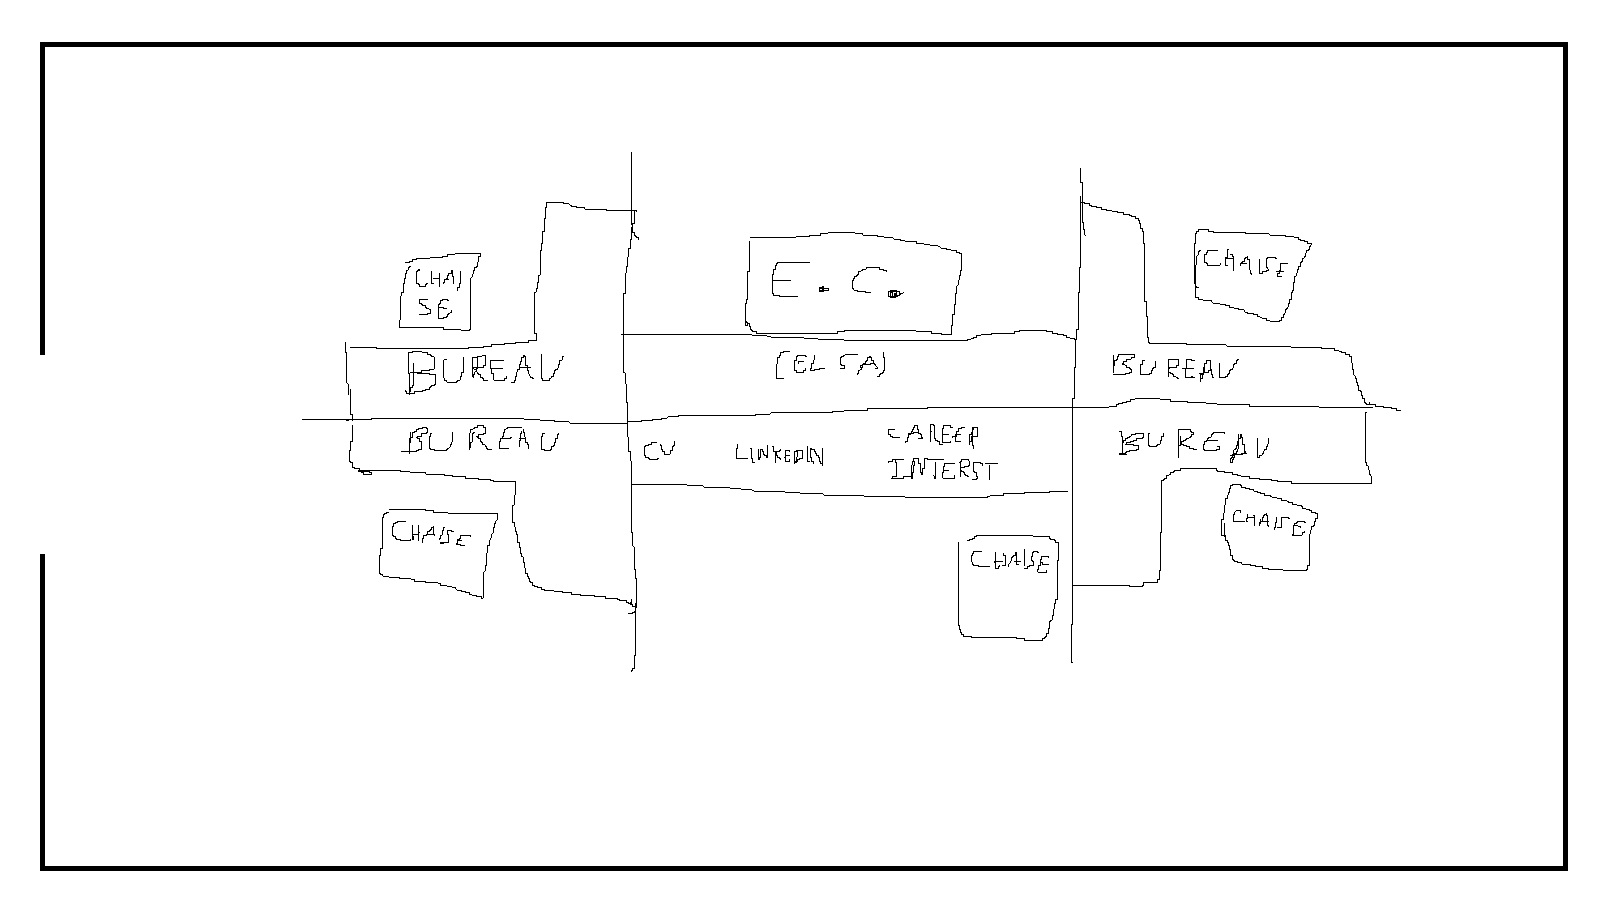 CHAI
SE
E. C.
CHAISE
BUREAU
(ELSA)
BUREAU
BUREAU
CV
LINKEDIN
CAREER
INTERST
BUREAU
CHAISE
CHAISE
CHAISE